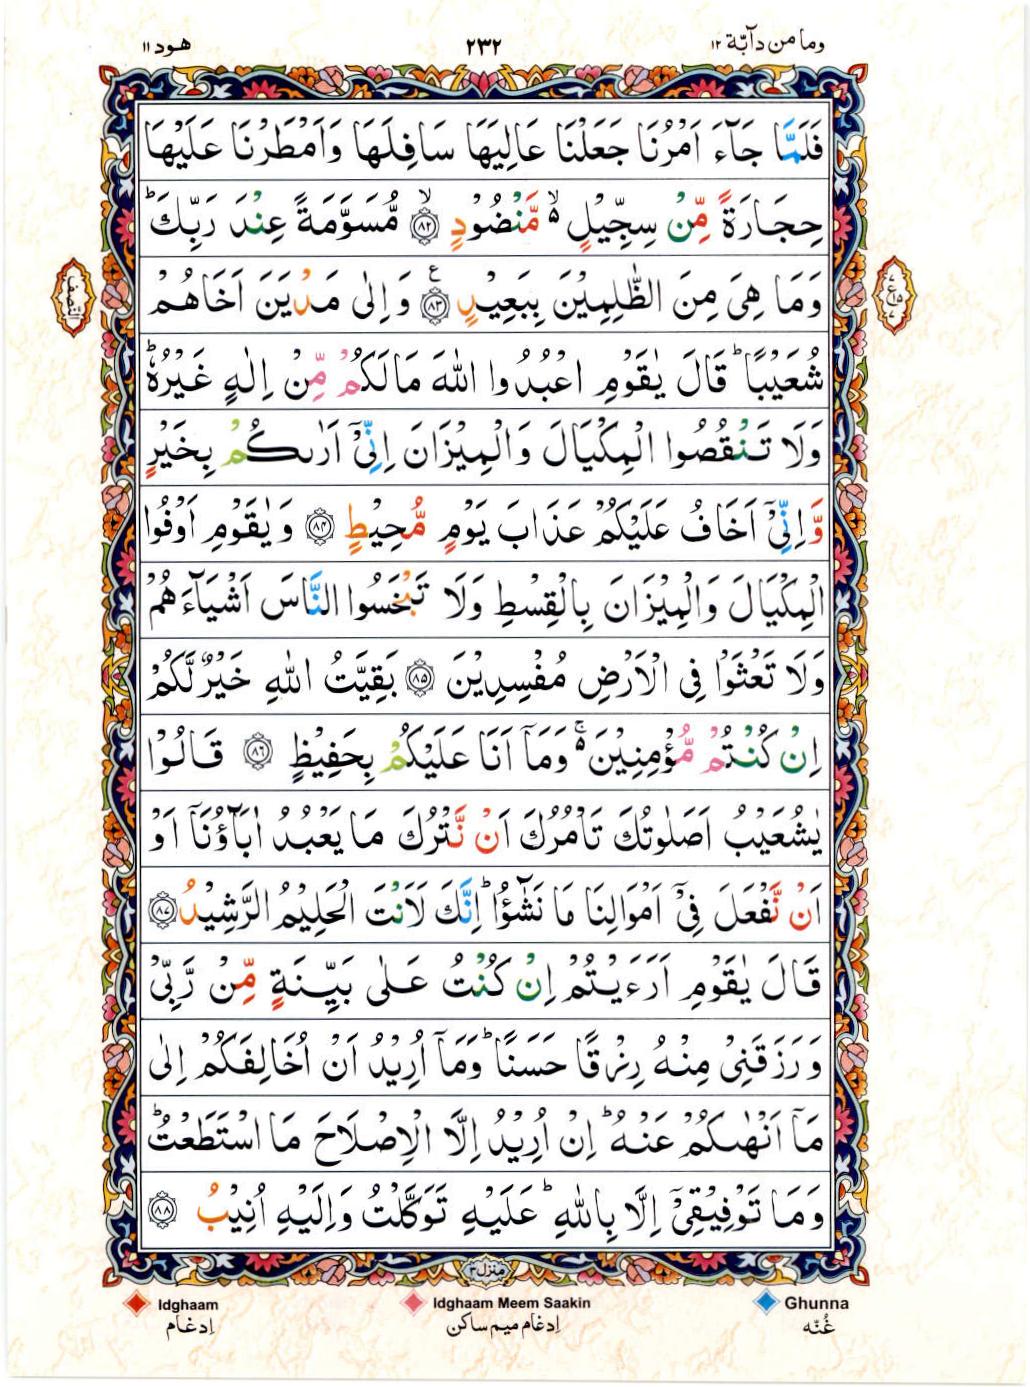 وما من دآبّة ١٢
٢٣٢
هود ١١
فَلَمَّا جَآءَ اَمْرُنَا جَعَلْنَا عَالِيَهَا سَافِلَهَا وَاَمْطَرْنَا عَلَيْهَا
حِجَارَةً مِّنْ سِجِّيْلٍ ۙ۬ مَّنْضُوْدٍ ﴿٨٢﴾ۙ مُّسَوَّمَةً عِنْدَ رَبِّكَ ؕ
وَمَا هِىَ مِنَ الظّٰلِمِيْنَ بِبَعِيْدٍ ﴿٨٣﴾ ع وَاِلٰى مَدْيَنَ اَخَاهُمْ
شُعَيْبًا ؕ قَالَ يٰقَوْمِ اعْبُدُوا اللّٰهَ مَا لَكُمْ مِّنْ اِلٰهٍ غَيْرُهٗ ؕ
وَلَا تَنْقُصُوا الْمِكْيَالَ وَالْمِيْزَانَ اِنِّىْۤ اَرٰىكُمْ بِخَيْرٍ
وَّاِنِّىْۤ اَخَافُ عَلَيْكُمْ عَذَابَ يَوْمٍ مُّحِيْطٍ ﴿٨٤﴾ وَيٰقَوْمِ اَوْفُوا
الْمِكْيَالَ وَالْمِيْزَانَ بِالْقِسْطِ وَلَا تَبْخَسُوا النَّاسَ اَشْيَآءَهُمْ
وَلَا تَعْثَوْا فِى الْاَرْضِ مُفْسِدِيْنَ ﴿٨٥﴾ بَقِيَّتُ اللّٰهِ خَيْرٌ لَّكُمْ
اِنْ كُنْتُمْ مُّؤْمِنِيْنَ ۚ۬ وَمَاۤ اَنَا عَلَيْكُمْ بِحَفِيْظٍ ﴿٨٦﴾ قَالُوْا
يٰشُعَيْبُ اَصَلٰوتُكَ تَاْمُرُكَ اَنْ نَّتْرُكَ مَا يَعْبُدُ اٰبَآؤُنَاۤ اَوْ
اَنْ نَّفْعَلَ فِىْۤ اَمْوَالِنَا مَا نَشٰٓؤُا ؕ اِنَّكَ لَاَنْتَ الْحَلِيْمُ الرَّشِيْدُ ﴿٨٧﴾
قَالَ يٰقَوْمِ اَرَءَيْتُمْ اِنْ كُنْتُ عَلٰى بَيِّنَةٍ مِّنْ رَّبِّىْ
وَرَزَقَنِىْ مِنْهُ رِزْقًا حَسَنًا ؕ وَمَاۤ اُرِيْدُ اَنْ اُخَالِفَكُمْ اِلٰى
مَاۤ اَنْهٰٮكُمْ عَنْهُ ؕ اِنْ اُرِيْدُ اِلَّا الْاِصْلَاحَ مَا اسْتَطَعْتُ ؕ
وَمَا تَوْفِيْقِىْۤ اِلَّا بِاللّٰهِ ؕ عَلَيْهِ تَوَكَّلْتُ وَاِلَيْهِ اُنِيْبُ ﴿٨٨﴾
النّصف
منزل ٣
Idghaam
ادغام
Idghaam Meem Saakin
ادغام ميم ساكن
Ghunna
غُنّه